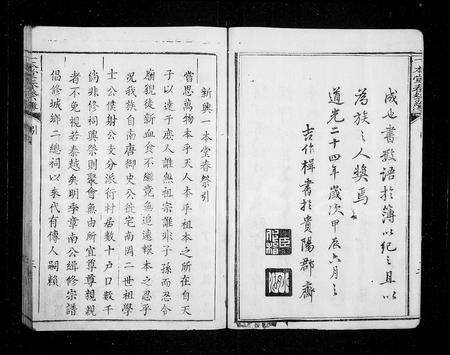 成也書數語於簿以紀之且以
為族之人獎焉
道光二十四年歲次甲辰六月之
吉作楫書於貴陽郡齋
新興一本堂春祭引
嘗思萬物本乎天人本乎祖本之所在自天
子以達于庶人誰無祖宗誰非子孫而忍令
廟貌徒新血食不繼竟無追遠報本之忍乎
況我族自南唐御史公徙宅南岡二世祖學
士公僕射公支分派衍村居數十戶口數千
倘非修祠興祭則聚會無由所宜尊尊親親
者不免視若秦越矣明季章南公緝修宗譜
倡修城鄉二總祠以來代有傳人嗣賴